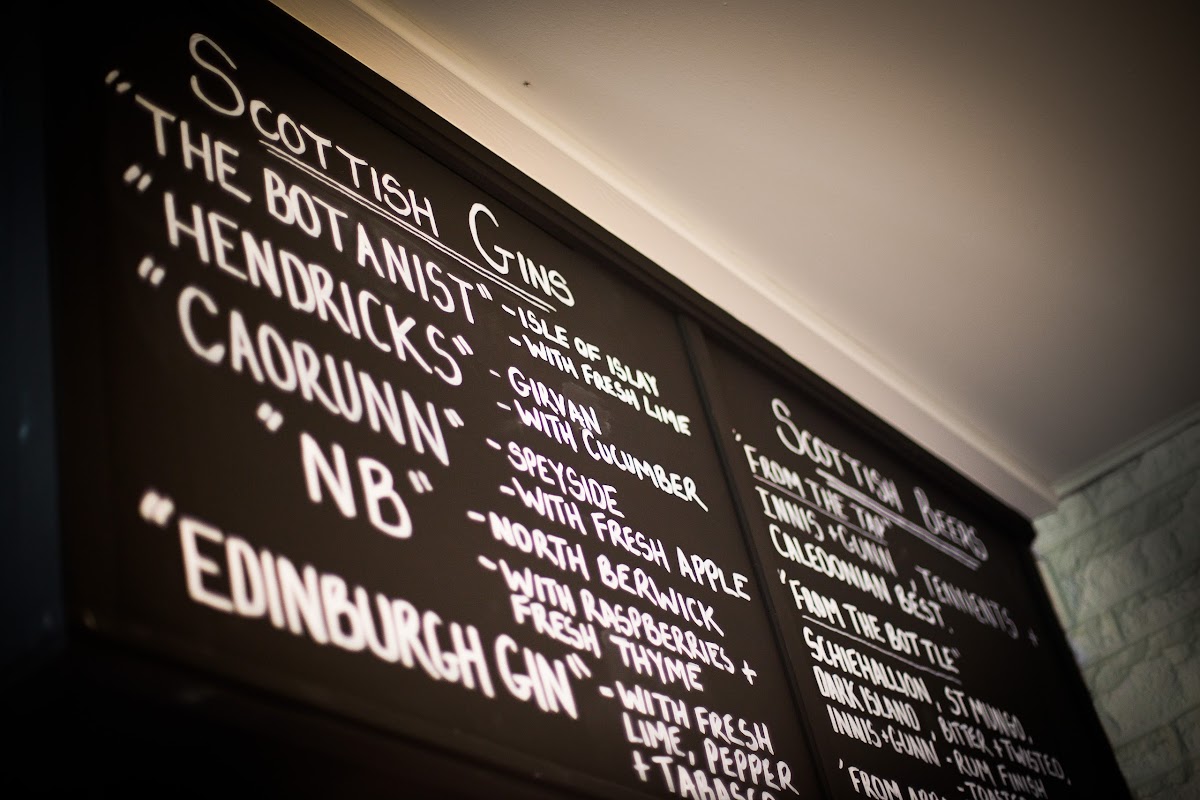 Scottish Gins
"THE BOTANIST" - ISLE OF ISLAY
- WITH FRESH LIME
"HENDRICKS" - GIRVAN
- WITH CUCUMBER
"CAORUNN" - SPEYSIDE
- WITH FRESH APPLE
"NB" - NORTH BERWICK
- WITH RASPBERRIES +
FRESH THYME
"EDINBURGH GIN" - WITH FRESH
LIME, PEPPER
+ TABASCO
Scottish Beers
"FROM THE TAP"
INNIS + GUNN, TENNENTS +
CALEDONIAN BEST.
"FROM THE BOTTLE"
SCHIEHALLION, ST MUNGO,
DARK ISLAND, BITTER + TWISTED,
INNIS + GUNN - RUM FINISH
"FROM